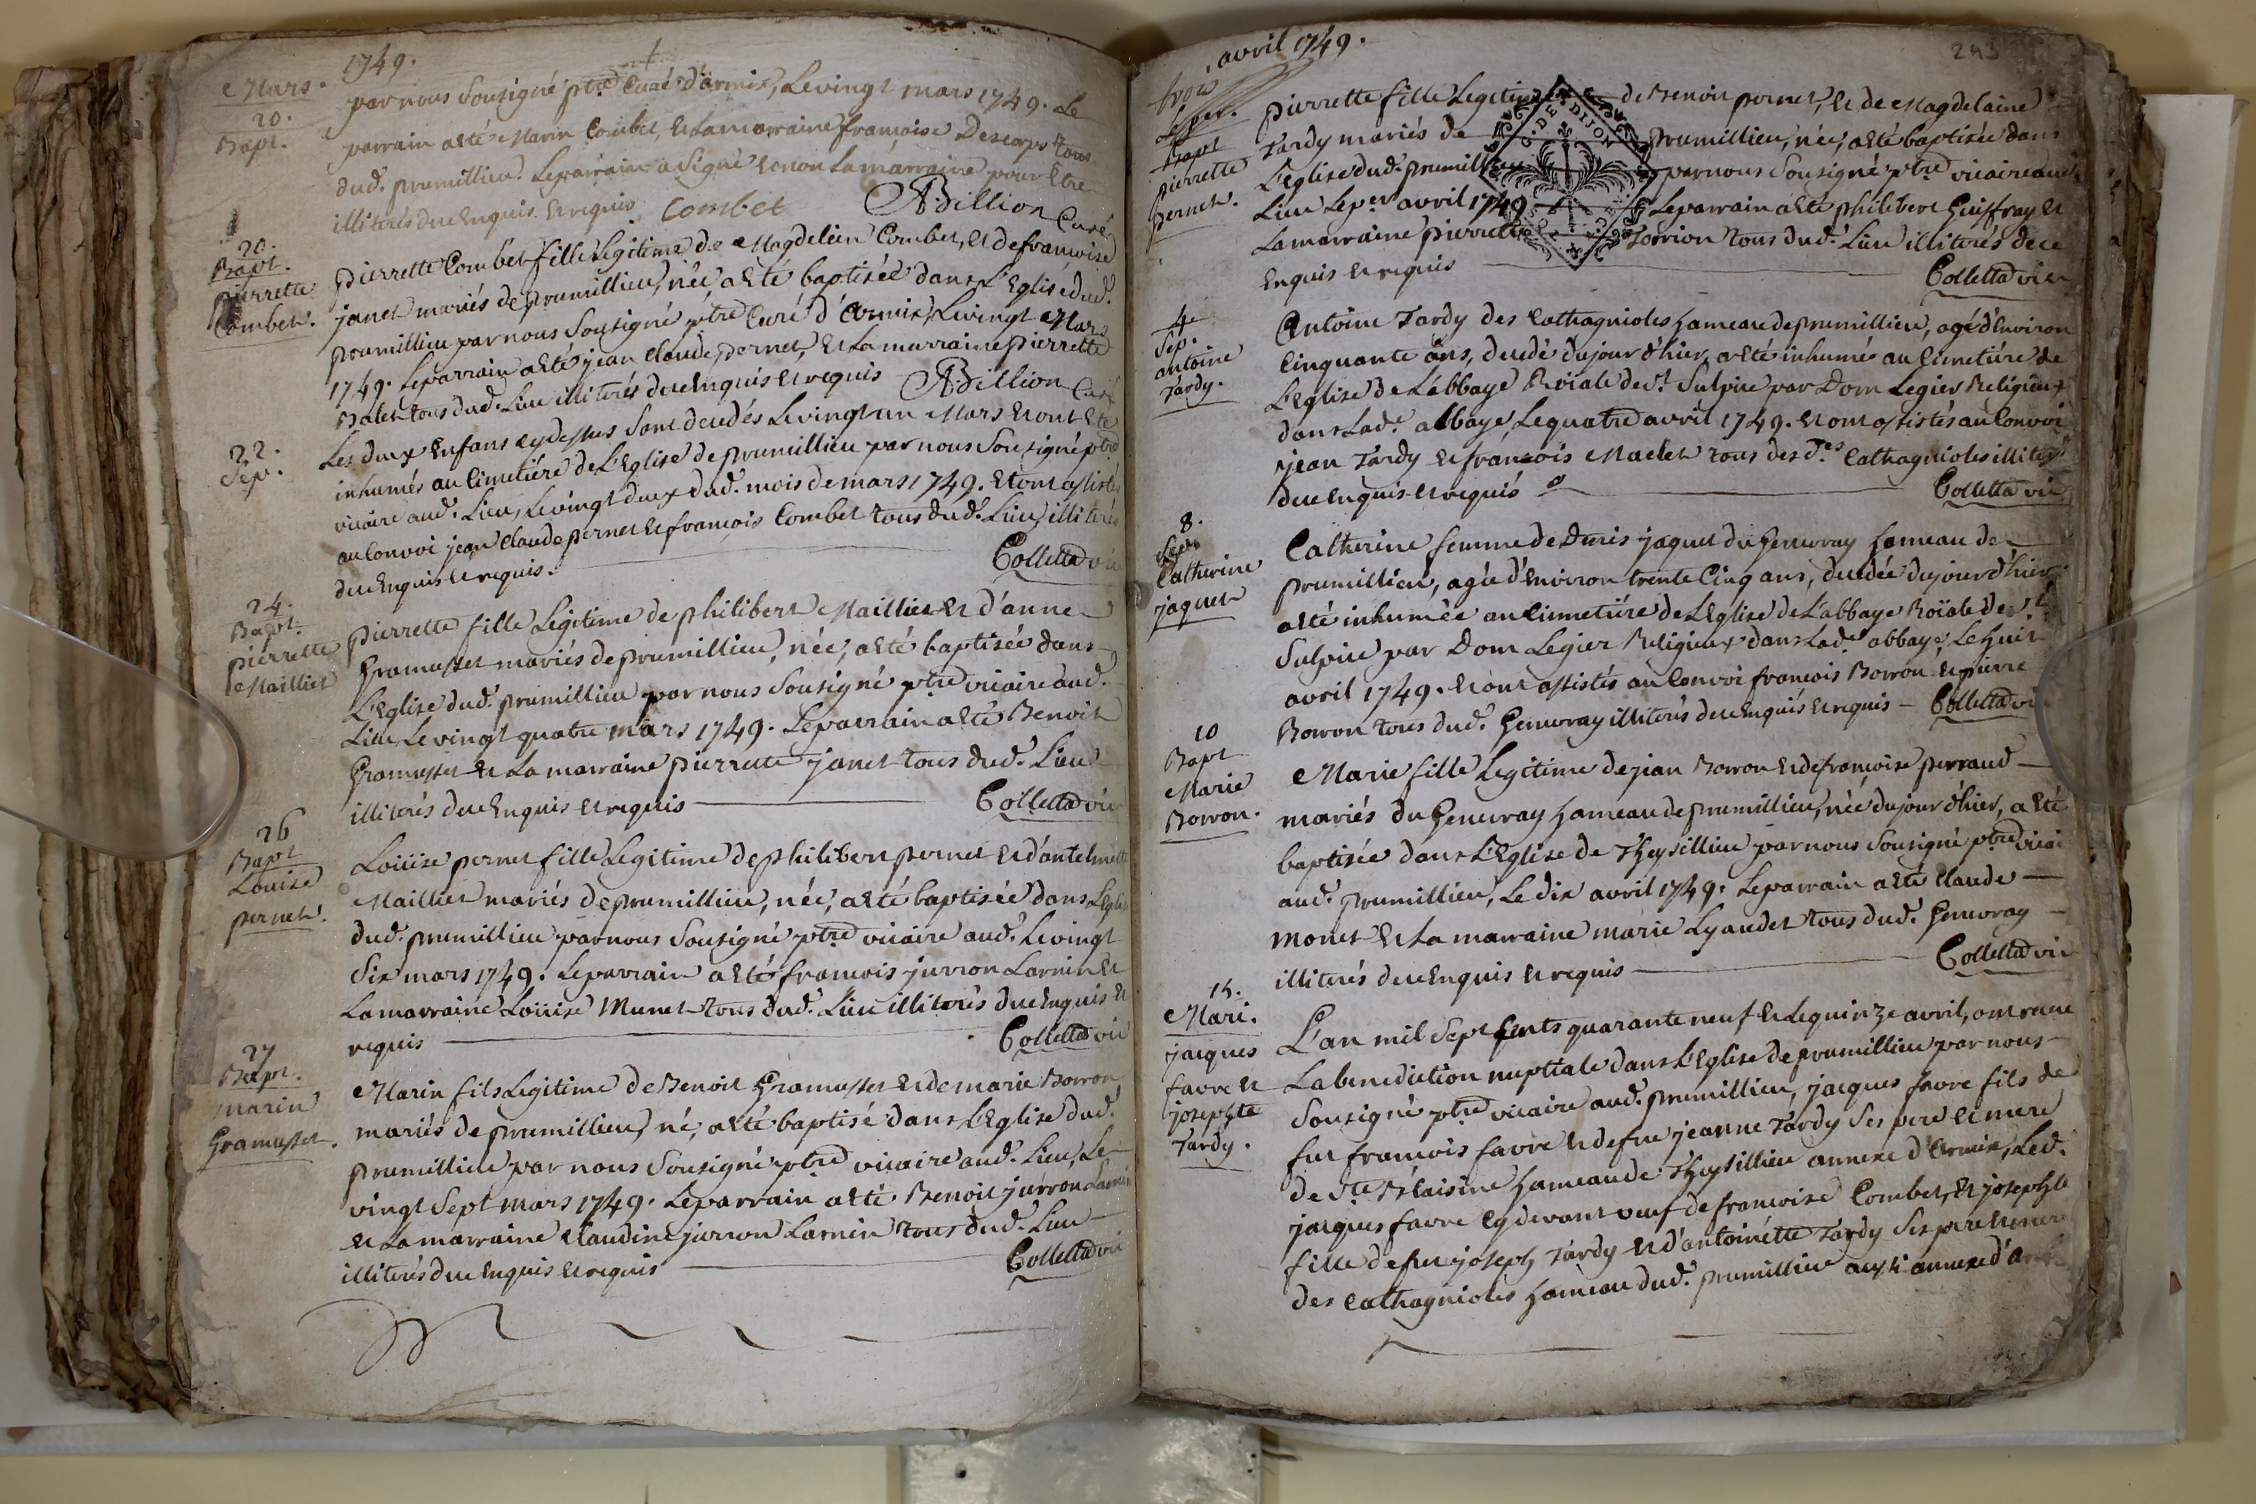 1749.
Mars.
20.
Bapt.
par nous Sousigné ptre Curé d'armix, Le vingt mars 1749. Le
parrain a Eté Marin Combet, Et La marraine francoise Descorps tous
dud. prumillieu. Le parrain a Signé Et non La marraine pour Etre
illiterés due Enquis Et requis Combet ABillion Curé
20.
Bapt.
Pierrette
Combet.
Pierrette Combet fille Legitime de Magdelein Combet, Et de francoise
janet mariés de prumillieu, née, a Eté baptisée dans L'Eglise dud.
prumillieu par nous Sousigné ptre Curé d'Armix, Le vingt Mars
1749. Le parrain a Eté jean Claude pernet, Et La marraine pierrette
Balet tous dud. Lieu illiterés due Enquis Et requis ABillion Curé
22.
Sep.
Les deux Enfans cy dessus Sont decedés Le vingt un Mars Et ont Eté
inhumés au Cimetiére de L'Eglise de prumillieu par nous Sousigné ptre
vicaire aud. Lieu, Le vingt deux dud. mois de mars 1749. Et ont assistés
au Convoi jean Claude pernet Et francois Combet tous dud. Lieu, illiterés
due Enquis Et requis. Colletta vic
24.
Bapt.
pierrette
Maillier
Pierrette fille Legitime de philibert Maillier Et d'anne
Gramusset mariés de prumillieu, née, a Eté baptisée dans
L'Eglise dud. prumillieu par nous Sousigné ptre vicaire aud.
Lieu, Le vingt quatre mars 1749. Le parrain a Eté Benoit
Gramusset Et La marraine pierrette janet tous dud. Lieu
illiterés due Enquis Et requis Colletta vic
26
Bapt
Louise
pernet.
Loüise pernet fille Legitime de philibert pernet Et d'antelmette
Maillier mariés de prumillieu, née, a Eté baptisée dans L'Eglise
dud. prumillieu par nous Sousigné ptre vicaire aud. Le vingt
Six mars 1749. Le parrain a Eté francois jurron Larnin Et
La marraine Loüise Munet tous dud. Lieu illiterés due Enquis Et
requis Colletta vic
27
Bapt.
marin
Gramusset.
Marin fils Legitime de Benoit Gramusset Et de marie Borron
mariés de prumillieu, né, a Eté baptisé dans L'Eglise dud.
prumillieu par nous Sousigné ptre vicaire aud. Lieu, Le
vingt Sept mars 1749. Le parrain a Eté Benoit jurron Larnin
Et La marraine Claudine jurron Larnin tous dud. Lieu
illiterés due Enquis Et requis Colletta vic
avril 1749.
243
G. DE DIJON
Le per.
Bapt
pierrette
pernet.
Pierrette fille Legitime de Benoit pernet, Et de Magdelaine
Tardy mariés de prumillieu, née, a Eté baptisée dans
L'Eglise dud. prumillieu par nous Sousigné ptre vicaire aud.
Lieu Le per avril 1749 Le parrain a Eté philibert Guiffray Et
La marraine pierrette Torrion tous dud. Lieu illiterés de ce
Enquis Et requis Colletta vic
4
Sep.
antoine
Tardy.
Antoine Tardy des Cathagnioles hameau de prumillieu, agé d'Environ
Cinquante ans, decedé du jour d'hier, a Eté inhumé au Cimetiére de
L'Eglise de L'abbaye Roiale de St. Sulpice par Dom Legier Religieux
dans Lad. abbaye, Le quatre avril 1749. Et ont assistés au Convoi
jean Tardy Et francois Maclet tous des d.es Cathagnioles illiterés
due Enquis Et requis Colletta vic
8.
Sep.
Catherine
jaquet
Catherine femme de Denis jaquet du Genevray hameau de
prumillieu, agée d'Environ trente Cinq ans, decedée du jour d'hier
a Eté inhumée au Cimetiére de L'Eglise de L'abbaye Roïale de St.
Sulpice par Dom Legier Religieux dans Lad. abbaye, Le huit
avril 1749. Et ont assistés au Convoi francois Borron Et pierre
Borron tous dud. Genevray illiterés due Enquis Et requis Colletta vic
10
Bapt
Marie
Borron.
Marie fille Legitime de jean Borron Et de francoise perraud
mariés du Genevray hameau de prumillieu, née du jour d'hier, a Eté
baptisée dans L'Eglise de Theysillieu par nous Sousigné ptre vicai
aud. prumillieu, Le dix avril 1749. Le parrain a Eté Claude
Monet Et La marraine marie Lyaudet tous dud. Genevray
illiterés due Enquis Et requis Colletta vic
15.
Mari.
jacques
favre Et
josephte
Tardy.
L'an mil Sept Cents quarante neuf Et Le quinze avril, ont recue
La benediction nuptiale dans L'Eglise de prumillieu par nous
Sousigné ptre vicaire aud. prumillieu, jacques favre fils de
feu francois favre Et de feue jeanne Tardy Ses pere Et mere
de Ste Blaisine hameau de Theysillieu annexe d'Armix, Led.
jacques favre cy devant veuf de francoise Combet, Et josephte
fille de feu joseph Tardy Et d'antoinétte Tardy Ses pere Et mere
des Cathagnioles hameau dud. prumillieu aussi annexe d'Armix